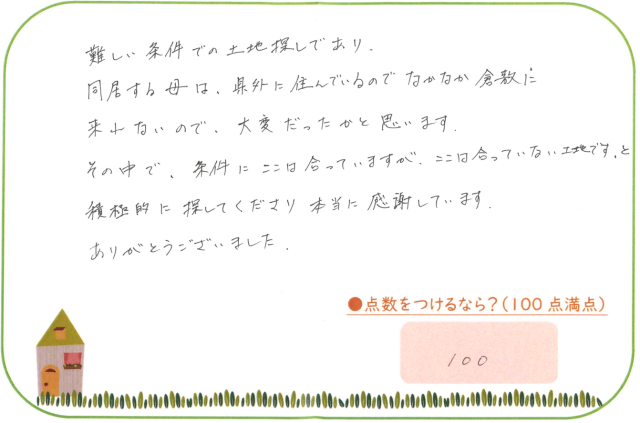 難しい条件での土地探しであり、
同居する母は、県外に住んでいるのでなかなか倉敷に
来れないので、大変だったかと思います。
その中で、条件にここは合っていますが、ここは合っていない土地です。と
積極的に探してくださり本当に感謝しています。
ありがとうございました。
●点数をつけるなら?(100点満点)
100